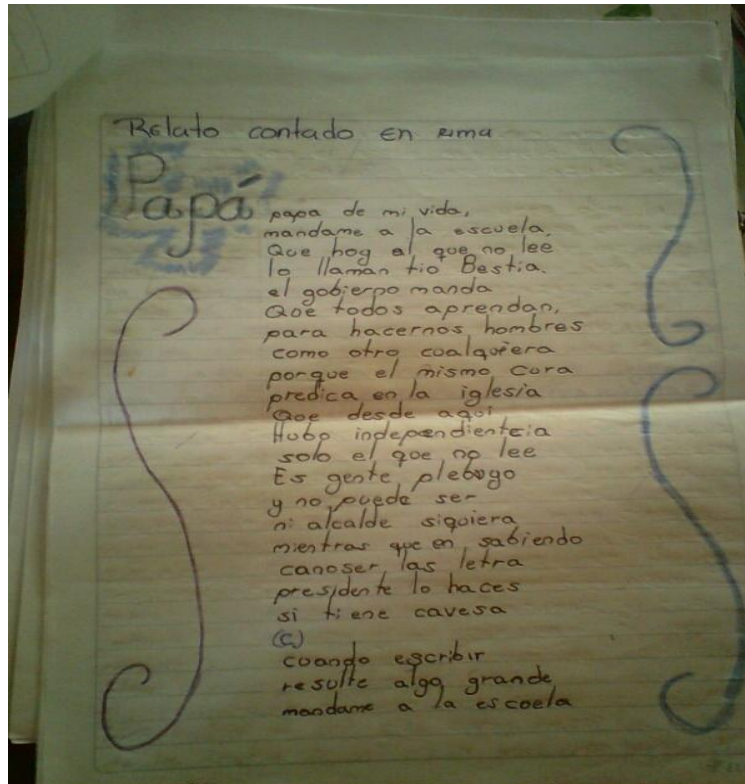 Relato contado en rima
Papá papa de mi vida,
mandame a la escuela,
Que hoy al que no lee
lo llaman tio Bestia.
el gobierno manda
Que todos aprendan,
para hacernos hombres
como otro cualquiera
porque el mismo cura
predica en la iglesia
Que desde aqui
Hubo independienteia
solo el que no lee
Es gente pleboyo
y no puede ser
ni alcalde siquiera
mientras que en sabiendo
canoser las letra
presidente lo haces
si tiene cavesa
(C)
cuando escribir
resulte algo grande
mandame a la escuela